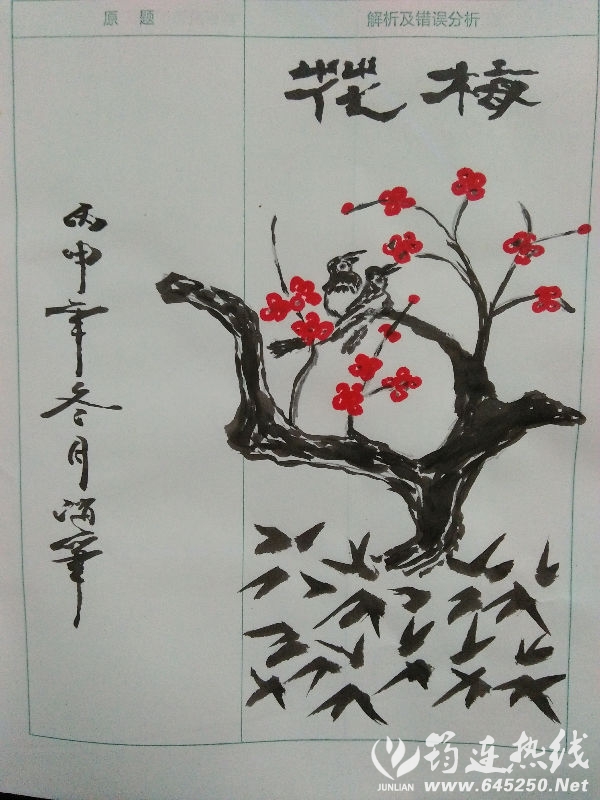 原 题
解析及错误分析
梅花
丙申年冬月
筠连热线
JUNLIAN
www.645250.Net